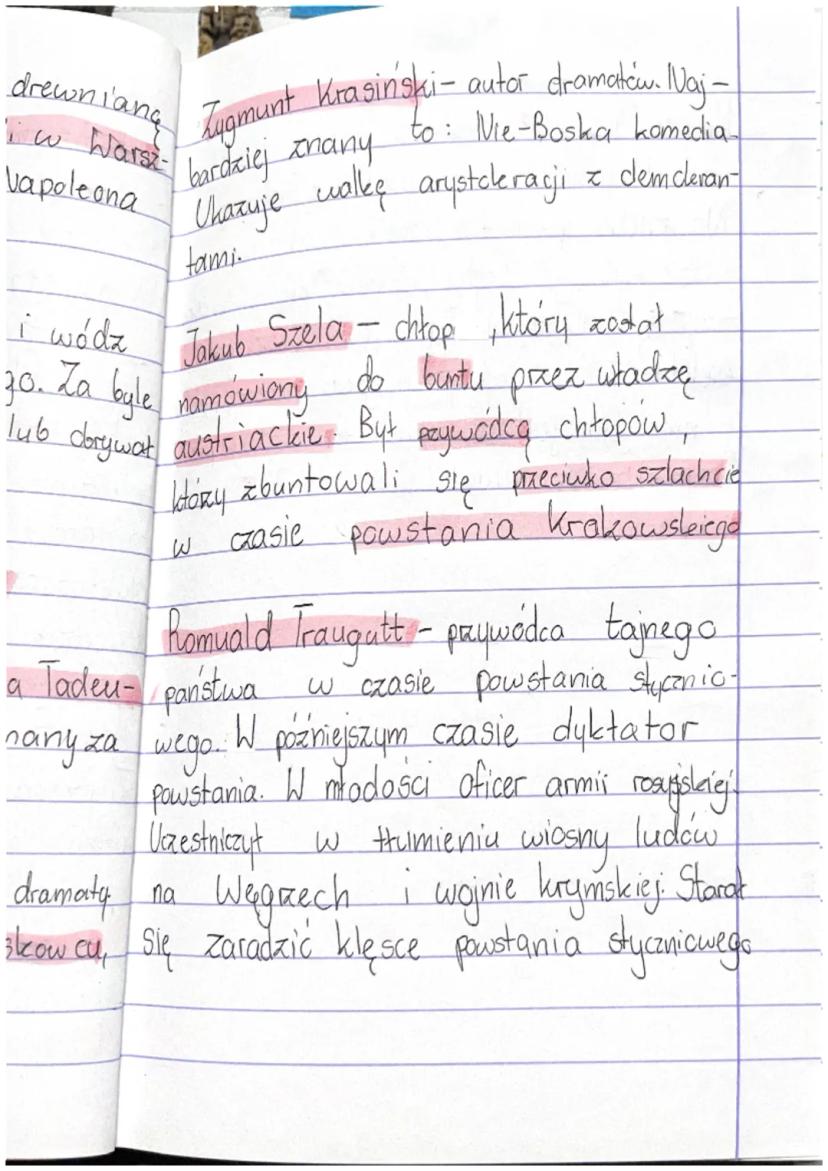 drewnianą
i w Warsz-
Napoleona
i wódz
go. Za byle
lub obrywał
a Tadeu-
nany za
dramaty
skowcu,
Zygmunt Krasiński - autor dramatów. Naj-
bardziej znany to: Nie-Boska komedia.
Ukazuje walkę arystokracji z demokran-
tami.
Jakub Szela - chłop, który został
namówiony do buntu przez władzę
austriackie. Był przywódcą chłopów,
którzy zbuntowali się przeciwko szlachcie
w czasie powstania Krakowskiego
Romuald Traugutt - przywódca tajnego
państwa w czasie powstania stycznio-
wego. W późniejszym czasie dyktator
powstania. W młodości oficer armii rosyjskiej.
Uczestniczył w tłumieniu wiosny ludów
na Węgrzech i wojnie krymskiej. Starał
się zaradzić klęsce powstania styczniowego